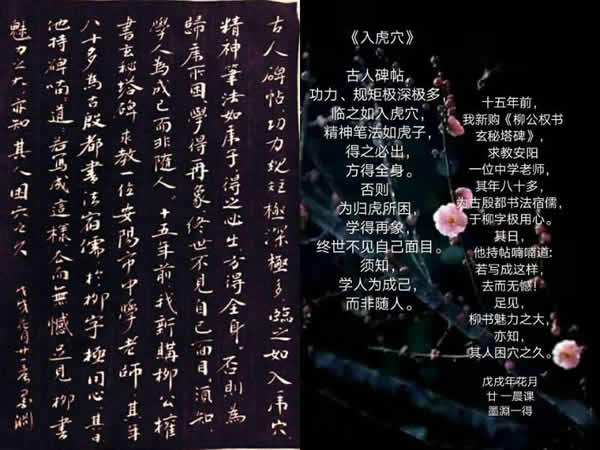 古人碑帖功力规矩極深極多臨之如入虎穴
精神筆法如虎子得之必出方得全身否則為
歸虎所困學得再象終世不見自己面目須知
學人為成己而非隨人。十五年前我新購柳公權
書玄秘塔碑求教一位安陽市中學老師其年
八十多為古殷都書法宿儒於柳字極用心其日
他持碑喃道若寫成這樣去而無憾足見柳書
魅力之大亦知其人困穴之久 戊戌
《入虎穴》
古人碑帖，
功力、规矩极深极多，
临之如入虎穴，
精神笔法如虎子，
得之必出，
方得全身。
否则，
为归虎所困，
学得再象，
终世不见自己面目。
须知，
学人为成己，
而非随人。
十五年前，
我新购《柳公权书
玄秘塔碑》，
求教安阳
一位中学老师，
其年八十多，
为古殷都书法宿儒，
于柳字极用心。
其日，
他持帖喃喃道:
若写成这样，
去而无憾！
足见，
柳书魅力之大，
亦知，
其人困穴之久。
戊戌年花月
廿一晨课
墨淵一得